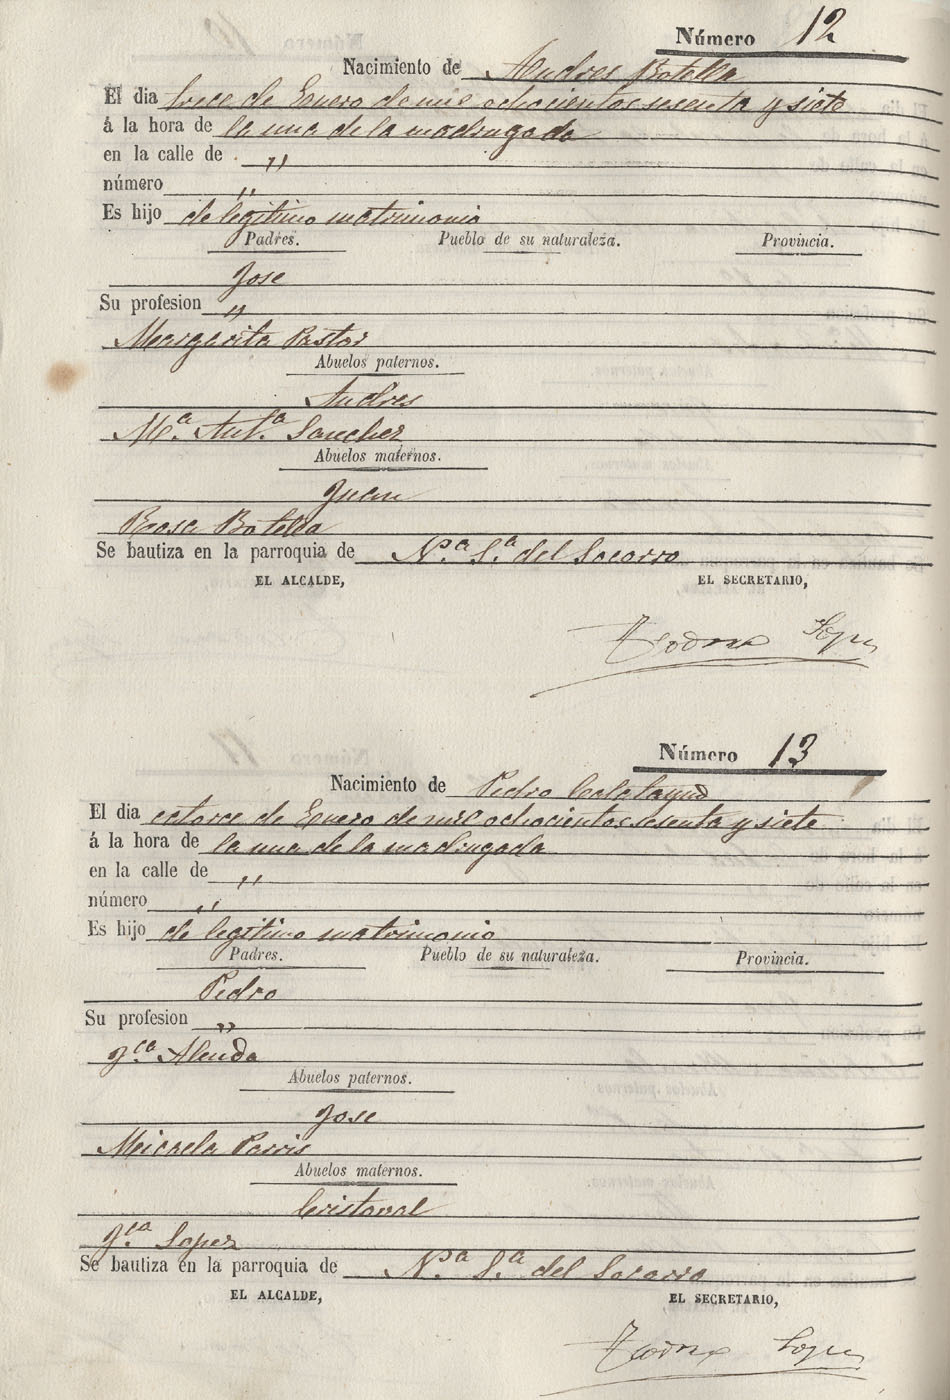 Número 12
Nacimiento de Andres Botella
El dia trece de Enero de mil ochocientos sesenta y siete
á la hora de la una de la madrugada
en la calle de "
número "
Es hijo de legitimo matrimonio
Padres. Pueblo de su naturaleza. Provincia.
Jose
Su profesion "
Margarita Pastor
Abuelos paternos.
Andres
Mª. Antª. Sanchez
Abuelos maternos.
Juan
Rosa Botella
Se bautiza en la parroquia de Nª. Sª. del Socorro
EL ALCALDE, EL SECRETARIO,
Lopez
Número 13
Nacimiento de Pedro Calatayud
El dia catorce de Enero de mil ochocientos sesenta y siete
á la hora de la una de la madrugada
en la calle de "
número "
Es hijo de legitimo matrimonio
Padres. Pueblo de su naturaleza. Provincia.
Pedro
Su profesion "
Fca. Alenda
Abuelos paternos.
Jose
Micaela
Abuelos maternos.
Cristoval
Fca. Lopez
Se bautiza en la parroquia de Nª. Sª. del Socorro
EL ALCALDE, EL SECRETARIO,
Lopez